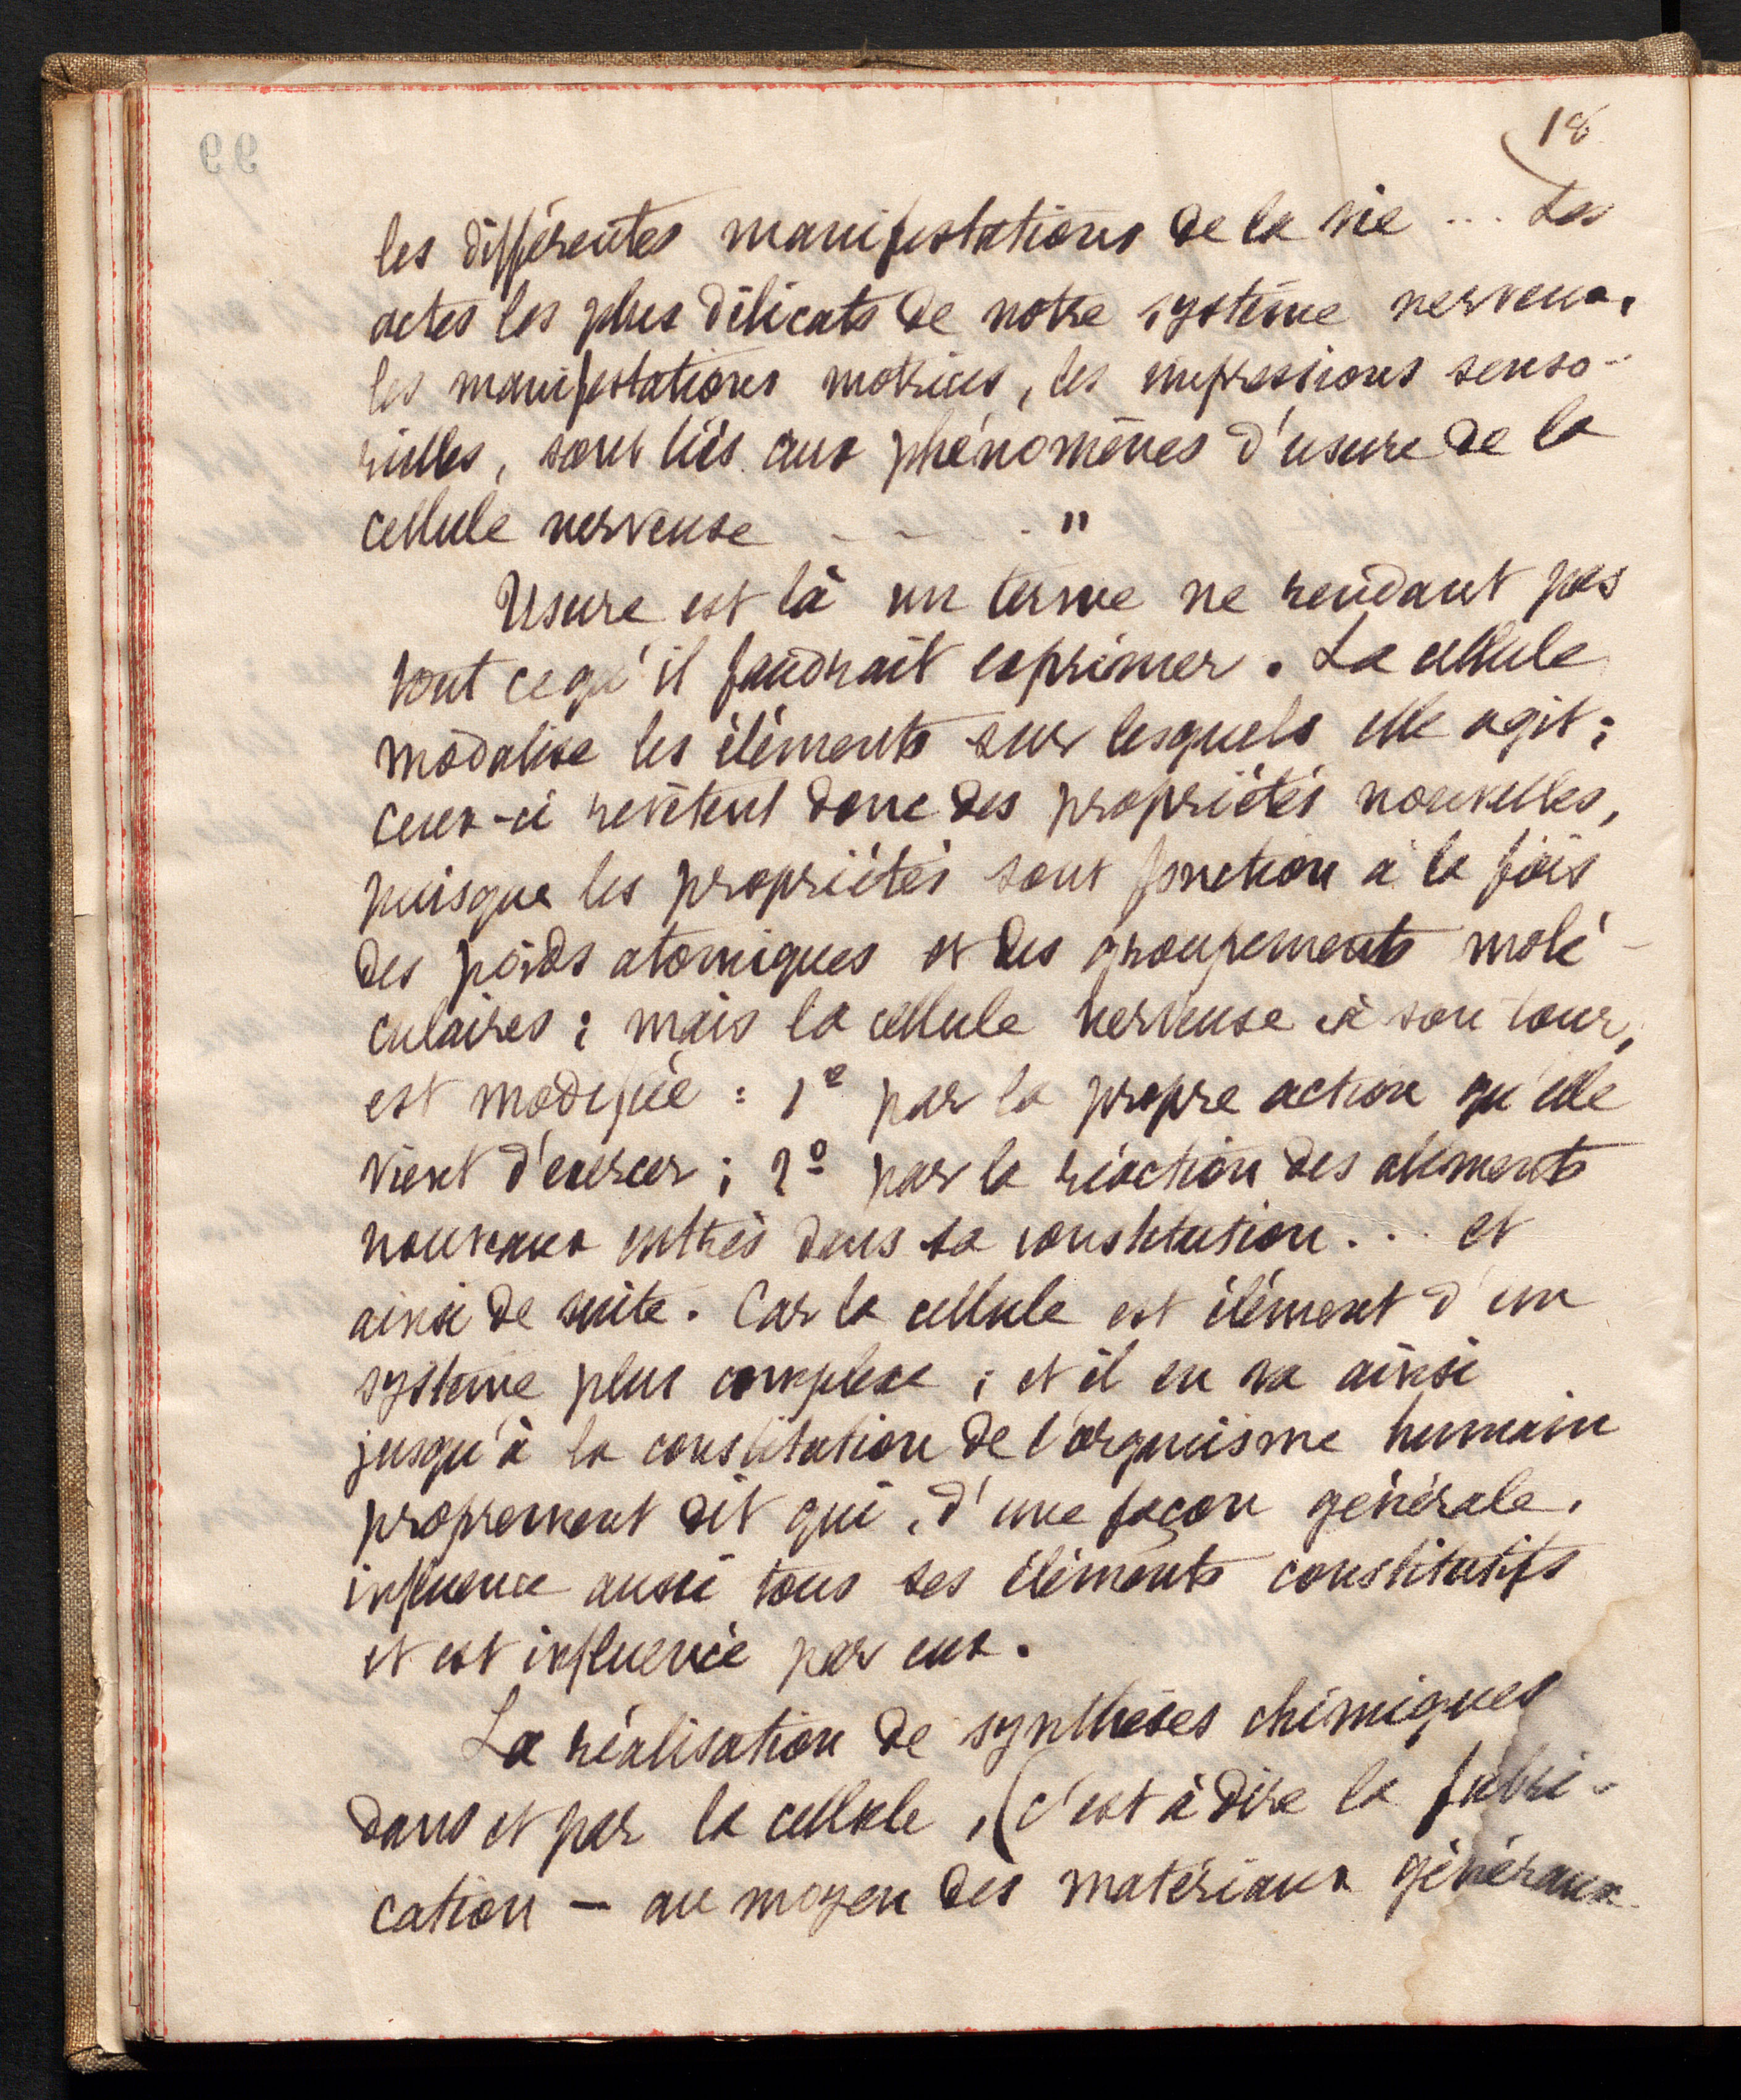 18
les différentes manifestations de la vie ... Les
actes les plus délicats de notre système nerveux,
les manifestations motrices, les impressions senso-
rielles, sont liés aux phénomènes d'usure de la
cellule nerveuse - - - . "
Usure est là un terme ne rendant pas
tout ce qu'il faudrait exprimer. La cellule
modalise les éléments sur lesquels elle agit ;
ceux-ci revêtent donc des propriétés nouvelles,
puisque les propriétés sont fonction à la fois
des poids atomiques et des groupements molé-
culaires ; mais la cellule nerveuse à son tour,
est modifiée : 1º par la propre action qu'elle
vient d'exercer ; 2º par la réaction des éléments
nouveaux entrés dans sa constitution... et
ainsi de suite. Car la cellule est élément d'un
système plus complexe ; et il en va ainsi
jusqu'à la constitution de l'organisme humain
proprement dit qui, d'une façon générale,
influence aussi tous ses éléments constitutifs
et est influencé par eux.
La réalisation de synthèses chimiques
dans et par la cellule, (c'est à dire la fabri-
cation – au moyen des matériaux généraux